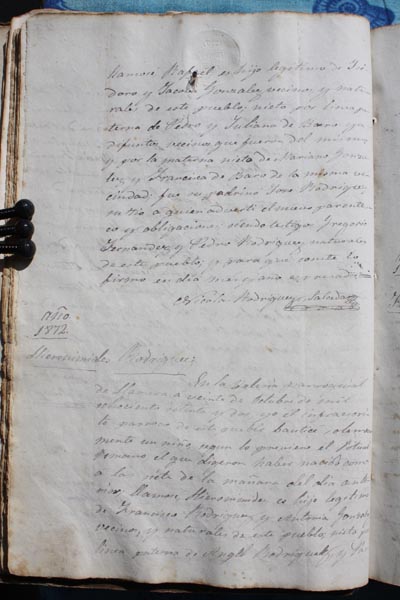 llamose Rafael es hijo legitimo de Isi
doro y Jacoba Gonzalez, vecinos, y natu
rales de este pueblo; nieto por linea pa
terna de Pedro y Juliana de Baro ya
difuntos, vecinos que fueron del mismo
y por la materna nieto de Mariano Gonza
lez y Francisca de Baro de la misma ve
cindad: fue su padrino Jose Rodriguez
su tio a quien adverti el nuevo parentes
co y obligaciones: siendo testigos Gregorio
Fernandez y Pedro Rodriguez naturales
de este pueblo; y para que conste lo
firmo en dia mes y año
Rodriguez Salvadores
Año
1872
Rodriguez
En la Iglesia parroquial
de a veinte de Octubre de mil
ochocientos setenta y dos, yo el infrascri
to parroco de este pueblo bautice solemne
mente un niño segun lo previene el Ritual
Romano el que dijeron haber nacido
a la siete de la mañana del dia ante
rior, llamose es hijo legitimo
de Francisco Rodriguez y Antonia Gonzalez
vecinos, y naturales de este pueblo, nieto por
linea paterna de Angel Rodriguez, y